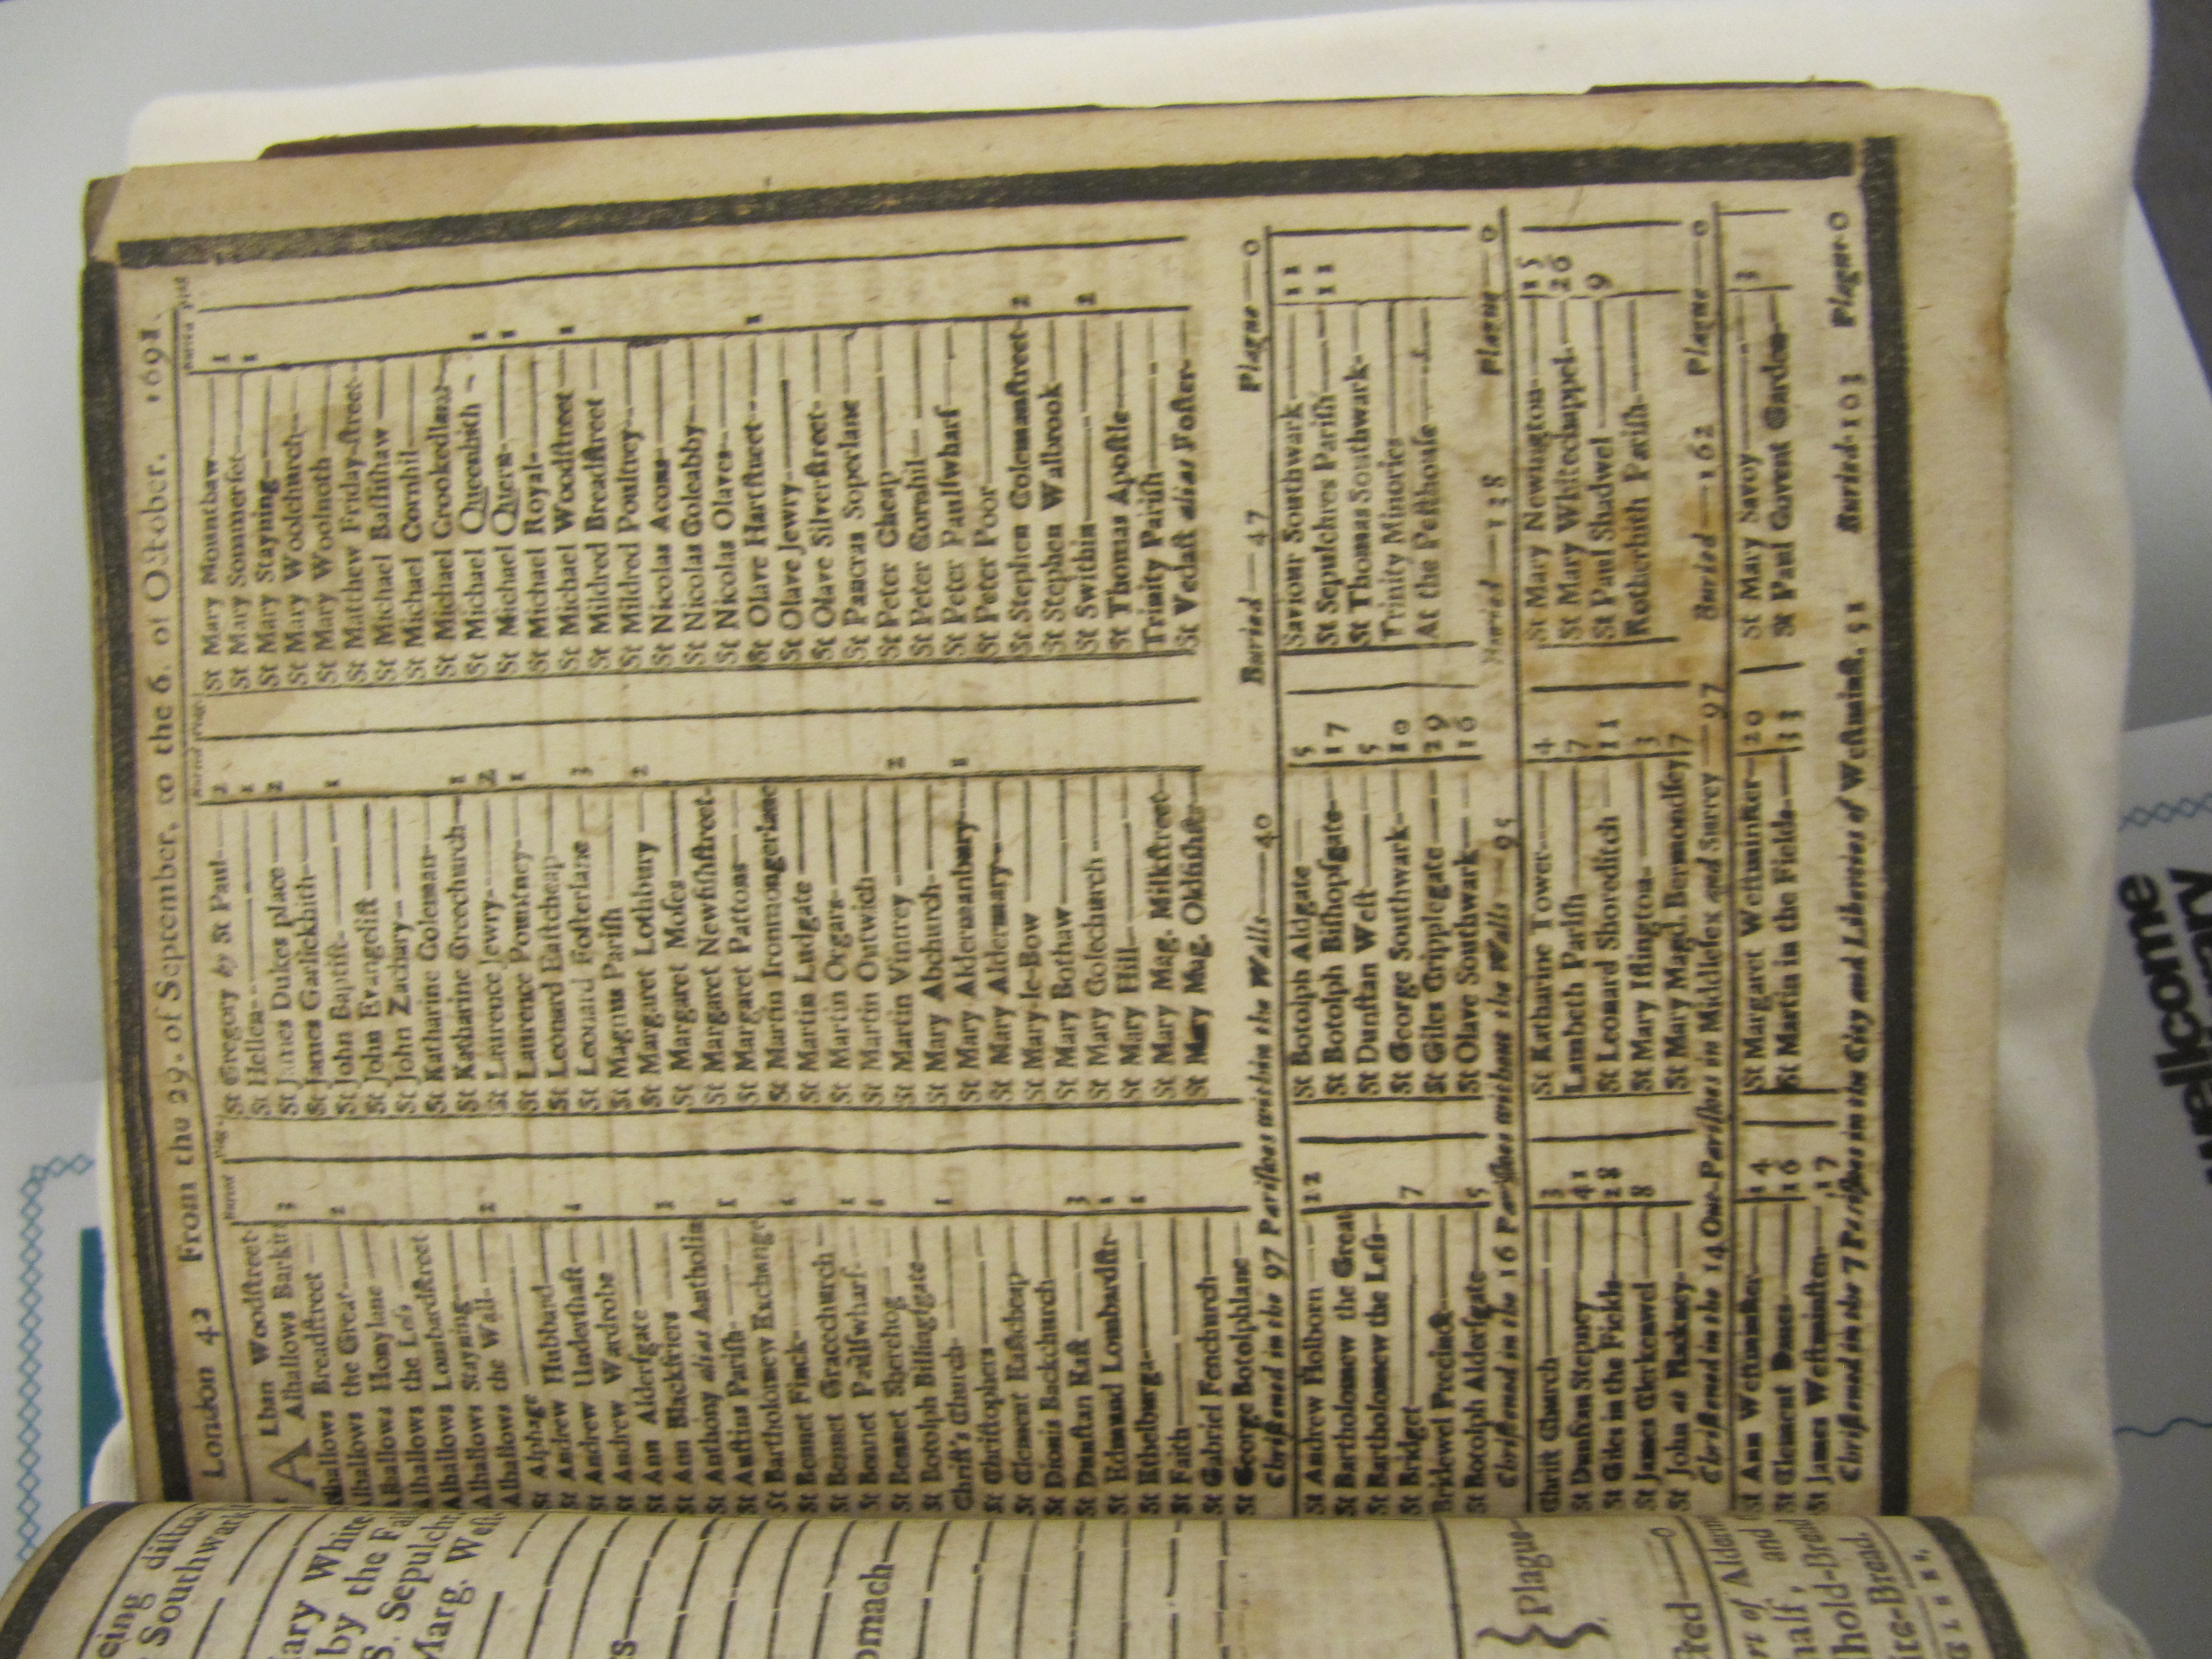 London 42 From the 29. of September, to the 6. of October. 1691.
ALban Woodstreet
Alhallows Barkin 3
Alhallows Breadstreet
Alhallows the Great 2
Alhallows Honylane
Alhallows the Less
Alhallows Lombardstreet
Alhallows Stayning
Alhallows the Wall 2
St Alphage
St Andrew Hubbard
St Andrew Undershaft 1
St Andrew Wardrobe
St Ann Aldersgate
St Ann Blackfriers 3
St Anthony alias Antholin
St Austins Parish 1
St Bartholomew Exchange
St Bennet Finck 1
St Bennet Gracechurch
St Bennet Paulswharf 1
St Bennet Sherehog 1
St Botolph Billingsgate
Christ's Church 1
St Christophers
St Clement Eastcheap
St Dionis Backchurch
St Dunstan East 3
St Edmund Lombardstr 1
St Ethelburga 1
St Faith
St Gabriel Fenchurch
St George Botolphlane
St Gregory by St Paul 2
St Hellen 1
St James Dukes place 2
St James Garlickhith
St John Baptist 1
St John Evangelist
St John Zachary
St Katharine Coleman
St Katharine Creechurch 1
St Laurence Jewry 2
St Laurence Pountney 1
St Leonard Eastcheap
St Leonard Fosterlane 3
St Magnus Parish
St Margaret Lothbury 2
St Margaret Moses
St Margaret Newfishstreet
St Margaret Pattons
St Martin Ironmongerlane
St Martin Ludgate
St Martin Orgars
St Martin Outwich
St Martin Vintrey 2
St Mary Abchurch
St Mary Aldermanbury 1
St Mary Aldermary
St Mary-le-Bow
St Mary Bothaw
St Mary Colechurch
St Mary Hill
St Mary Mag. Milkstreet
St Mary Mag. Oldfishstr
St Mary Mounthaw 1
St Mary Sommerset 1
St Mary Stayning
St Mary Woolchurch
St Mary Woolnoth
St Matthew Friday-street
St Michael Bassishaw
St Michael Cornhil
St Michael Crookedlane
St Michael Queenhith 1
St Michael Quern 1
St Michael Royal
St Michael Woodstreet 1
St Mildred Breadstreet
St Mildred Poultrey
St Nicolas Acons
St Nicolas Coleabby
St Nicolas Olaves
St Olave Hartstreet 1
St Olave Jewry
St Olave Silverstreet
St Pancras Soperlane
St Peter Cheap
St Peter Cornhil
St Peter Paulswharf
St Peter Poor
St Stephen Colemanstreet 2
St Stephen Walbrook
St Swithin 2
St Thomas Apostle
Trinity Parish
St Vedast alias Foster
Christened in the 97 Parishes within the Walls 40 Buried 47 Plague 0
St Andrew Holborn 12
St Bartholomew the Great
St Bartholomew the Less
St Bridget 7
Bridewel Precinct
St Botolph Aldersgate 5
St Botolph Aldgate 5
St Botolph Bishopsgate 17
St Dunstan West 5
St George Southwark 10
St Giles Cripplegate 29
St Olave Southwark 16
Saviour Southwark 11
St Sepulchres Parish 11
St Thomas Southwark
Trinity Minories
At the Pesthouse
Christened in the 16 Parishes without the Walls 95 Buried 128 Plague 0
Christ Church 3
St Dunstan Stepney 41
St Giles in the Fields 28
St James Clerkenwel 8
St John at Hackney
St Katharine Tower 4
Lambeth Parish 7
St Leonard Shoreditch 11
St Mary Islington 3
St Mary Magd. Bermondsey 7
St Mary Newington 15
St Mary Whitechappel 26
St Paul Shadwel 9
Rotherhith Parish
Christened in the 14 Out-Parishes in Middlesex and Surrey 97 Buried 162 Plague 0
St Ann Westminster 14
St Clement Danes 16
St James Westminster 17
St Margaret Westminster 20
St Martin in the Fields 33
St Mary Savoy 3
St Paul Covent Garden
Christened in the 7 Parishes in the City and Liberties of Westminst. 51 Buried 103 Plague 0
cing distra
Southwark
Mary White
by the Fal
S. Sepulchr
Marg. West
omach
Plague
0
of Alderm
half, and
hold-Bread
ite-Bread.
wellcome
library